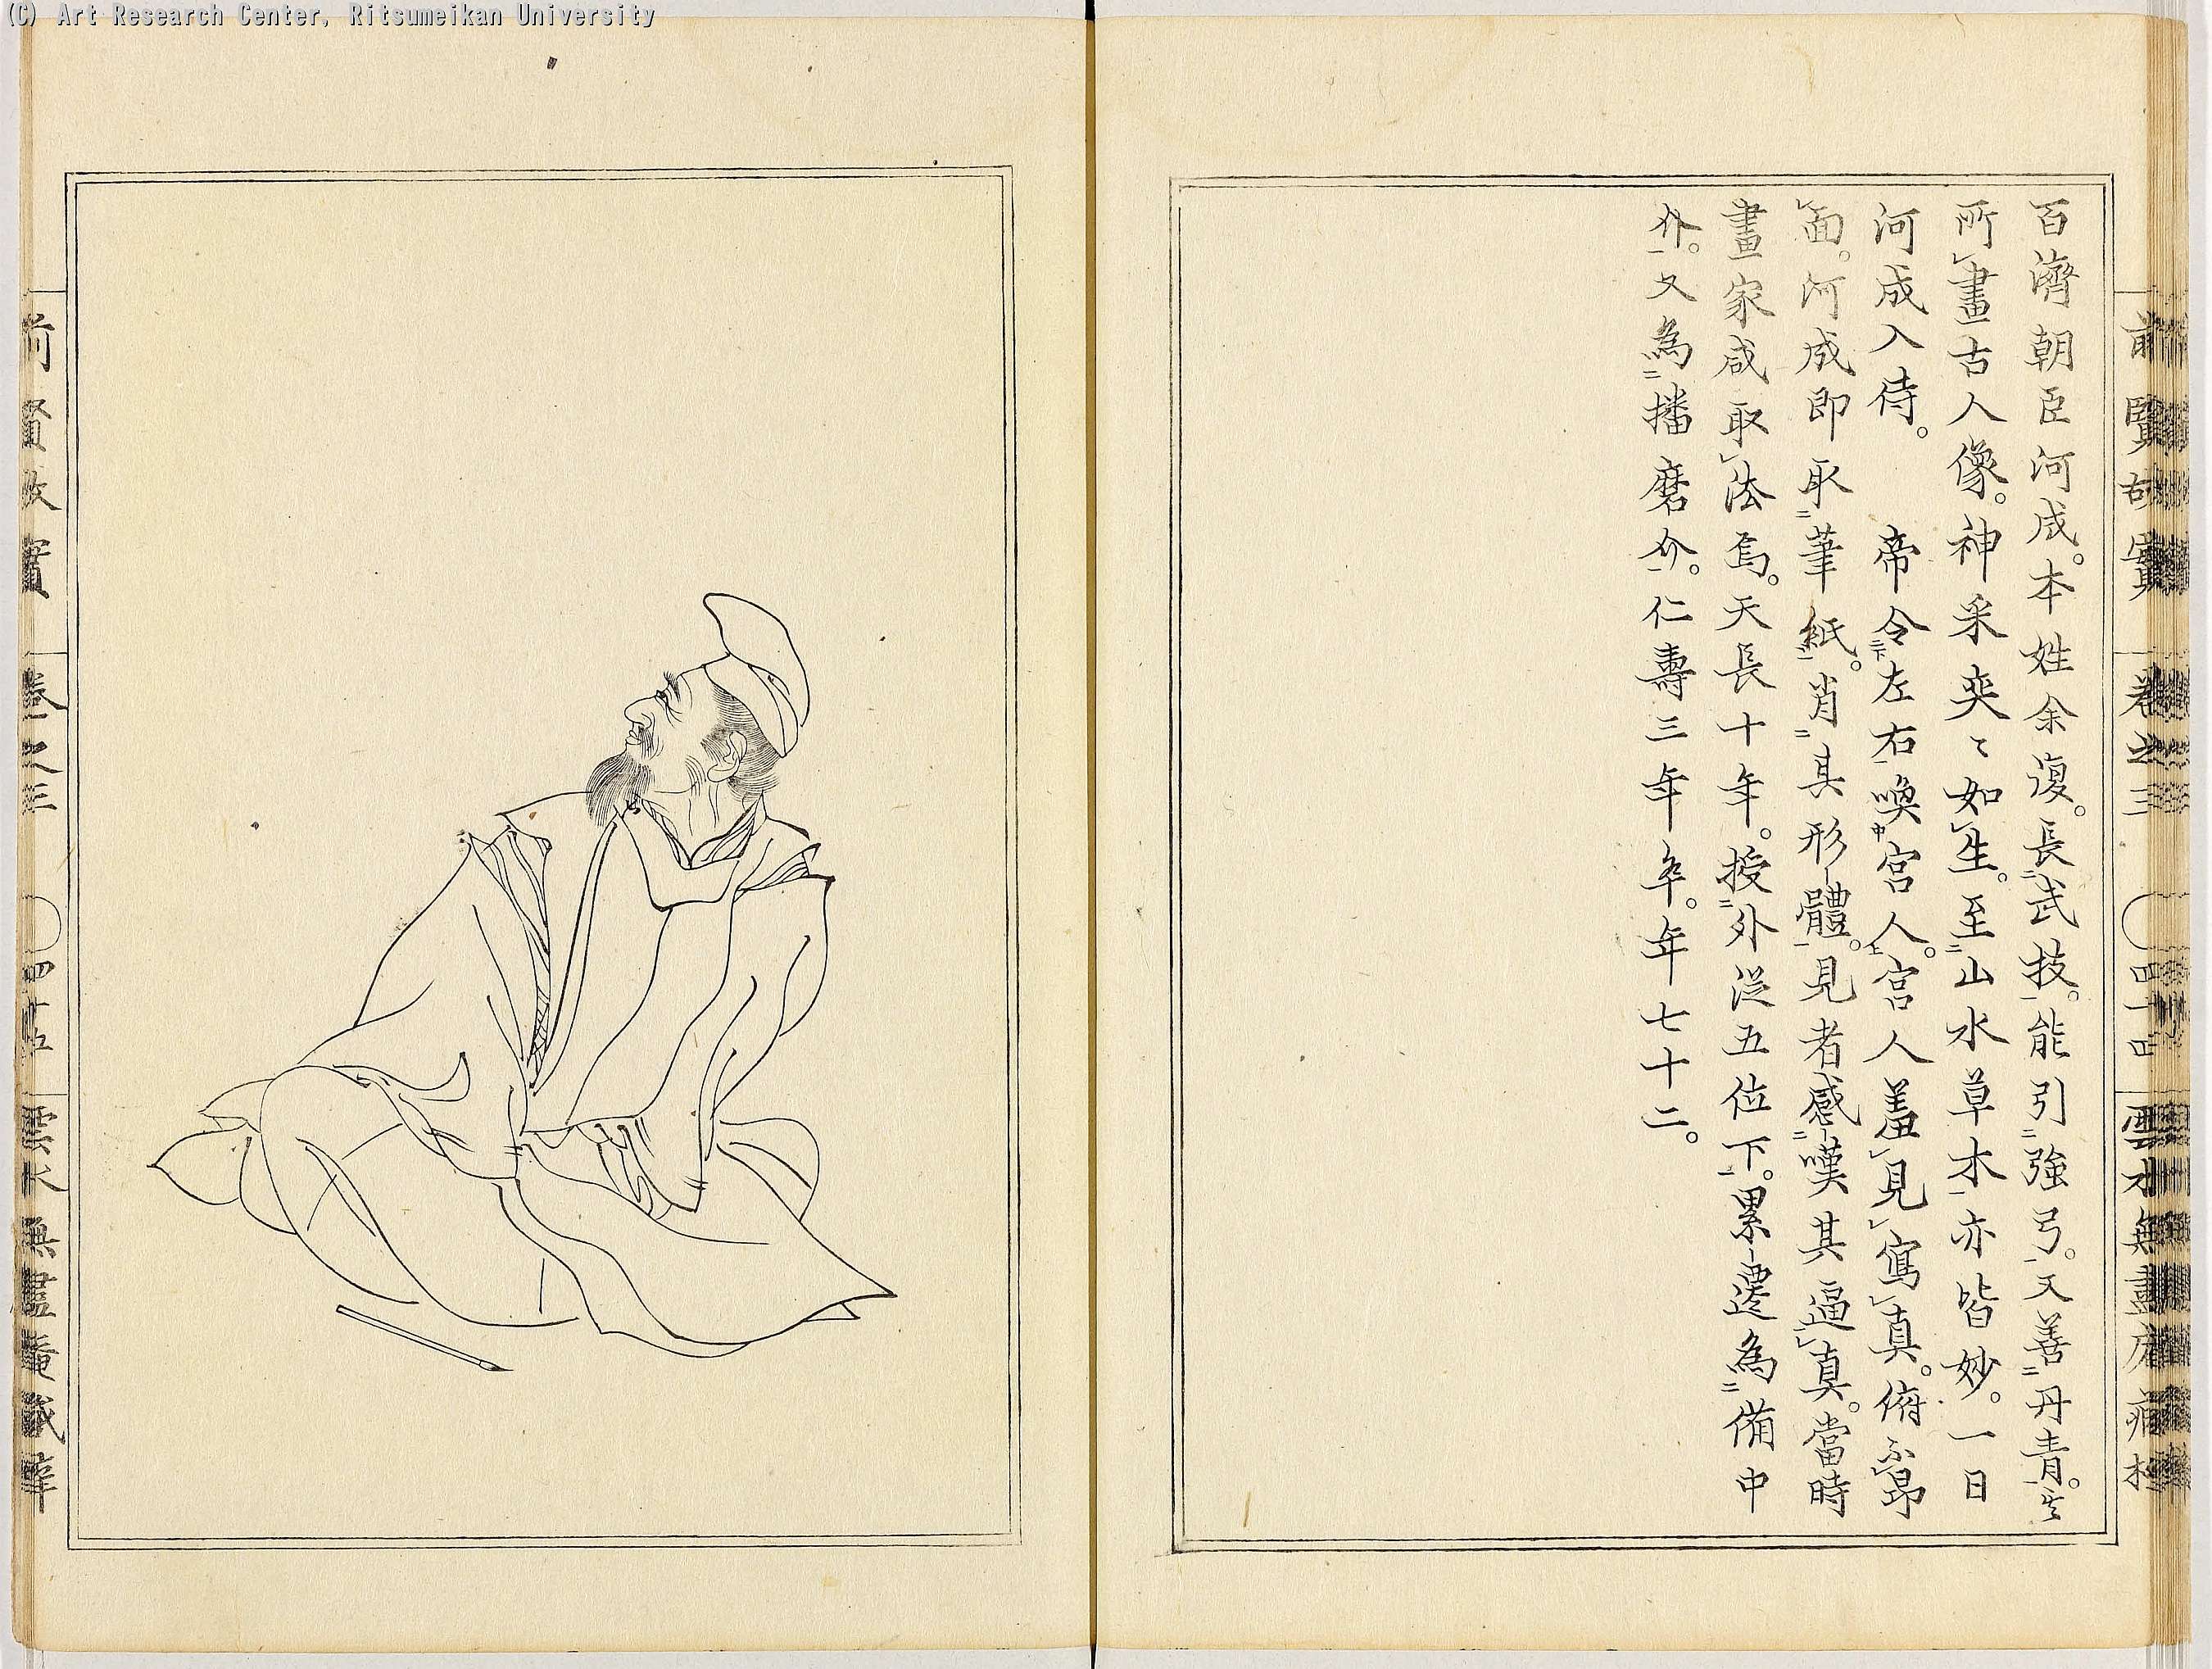 (C) Art Research Center, Ritsumeikan University
前賢故實 卷之三 四十四 雲水無盡庵
百濟朝臣河成。本姓余復。長武技。能引強弓。又善丹青。其
所畫古人像。神采奕〻如生。至山水草木亦皆妙。一日
河成入侍。 帝令左右喚宮人。宮人羞見寫真。俯不昂
面。河成即取筆紙。肖其形體。見者感嘆其逼真。當時
畫家咸取法焉。天長十年。授外從五位下。累遷為備中
介。又為播磨介。仁壽三年卒。年七十二。
前賢故實 卷之三 四十五 雲水無盡庵藏